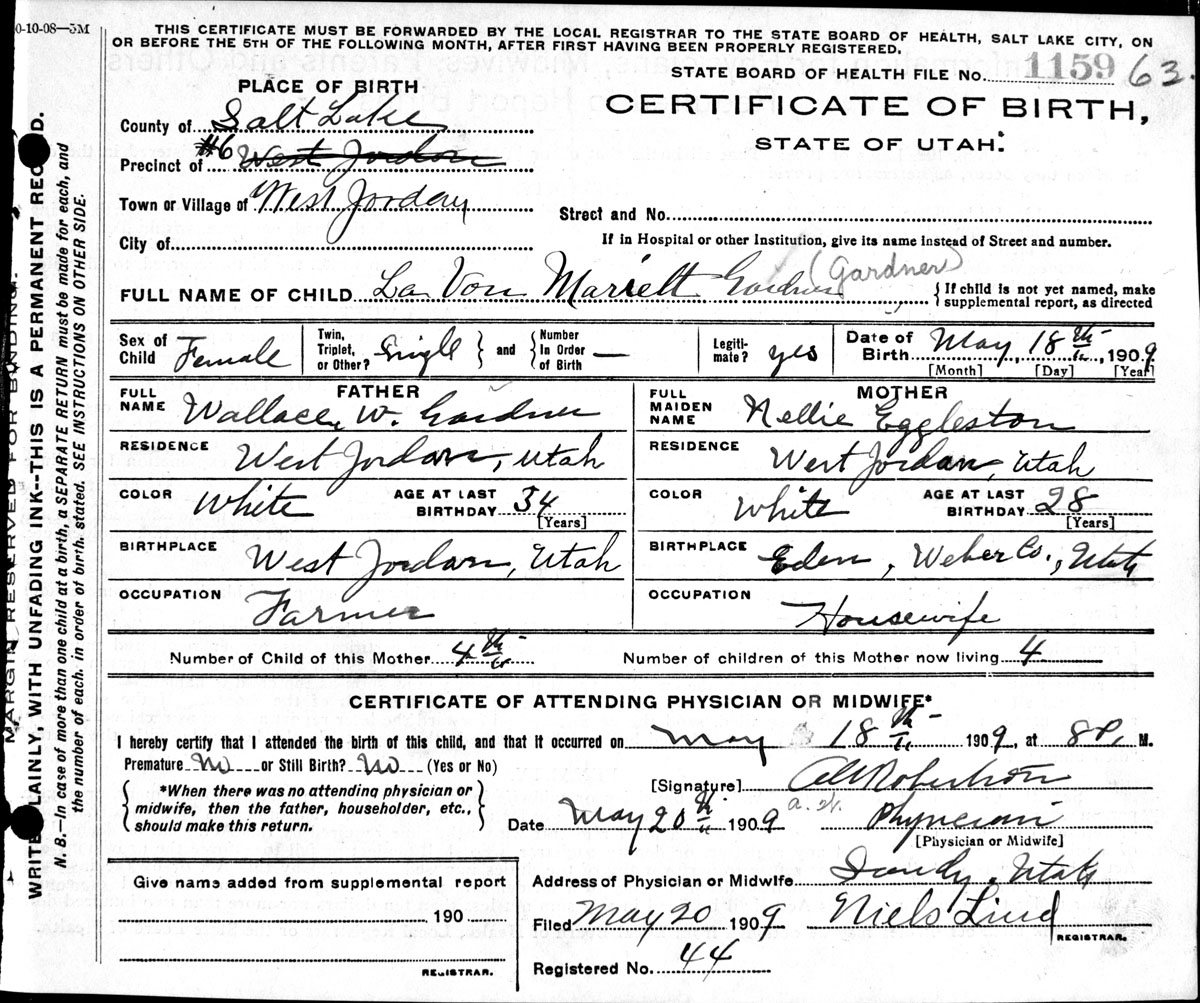 0-10-08—5M
THIS CERTIFICATE MUST BE FORWARDED BY THE LOCAL REGISTRAR TO THE STATE BOARD OF HEALTH, SALT LAKE CITY, ON
OR BEFORE THE 5TH OF THE FOLLOWING MONTH, AFTER FIRST HAVING BEEN PROPERLY REGISTERED.
STATE BOARD OF HEALTH FILE No. 1159 63
PLACE OF BIRTH
CERTIFICATE OF BIRTH,
STATE OF UTAH.
County of Salt Lake
Precinct of #6 West Jordan
Town or Village of West Jordan
Street and No.
City of
If in Hospital or other Institution, give its name instead of Street and number.
FULL NAME OF CHILD La Von Mariett Gardner (Gardner) { If child is not yet named, make
supplemental report, as directed
Sex of Child Female Twin, Triplet, or Other? Single } and { Number In Order of Birth — Legiti-mate? yes Date of Birth May, 18th, 1909
[Month] [Day] [Year]
FATHER MOTHER
FULL NAME Wallace W. Gardner FULL MAIDEN NAME Nellie Eggleston
RESIDENCE West Jordan, Utah RESIDENCE West Jordan, Utah
COLOR White AGE AT LAST BIRTHDAY 34 [Years] COLOR White AGE AT LAST BIRTHDAY 28 [Years]
BIRTHPLACE West Jordan, Utah BIRTHPLACE Eden, Weber Co., Utah
OCCUPATION Farmer OCCUPATION Housewife
Number of Child of this Mother 4th Number of children of this Mother now living 4
CERTIFICATE OF ATTENDING PHYSICIAN OR MIDWIFE*
I hereby certify that I attended the birth of this child, and that it occurred on May 18th 1909, at 8P. M.
Premature No or Still Birth? No (Yes or No)
[Signature] AW Robertson
{ *When there was no attending physician or
midwife, then the father, householder, etc.,
should make this return. }
a.w.
Date May 20th 1909 Physician
[Physician or Midwife]
Give name added from supplemental report
190
REGISTRAR.
Address of Physician or Midwife Sandy, Utah
Filed May 20 1909 Niels Lind
REGISTRAR.
Registered No. 44
MARGIN RESERVED FOR BINDING.
WRITE PLAINLY, WITH UNFADING INK--THIS IS A PERMANENT RECORD.
N. B.—In case of more than one child at a birth, a SEPARATE RETURN must be made for each, and
the number of each, in order of birth, stated. SEE INSTRUCTIONS ON OTHER SIDE.